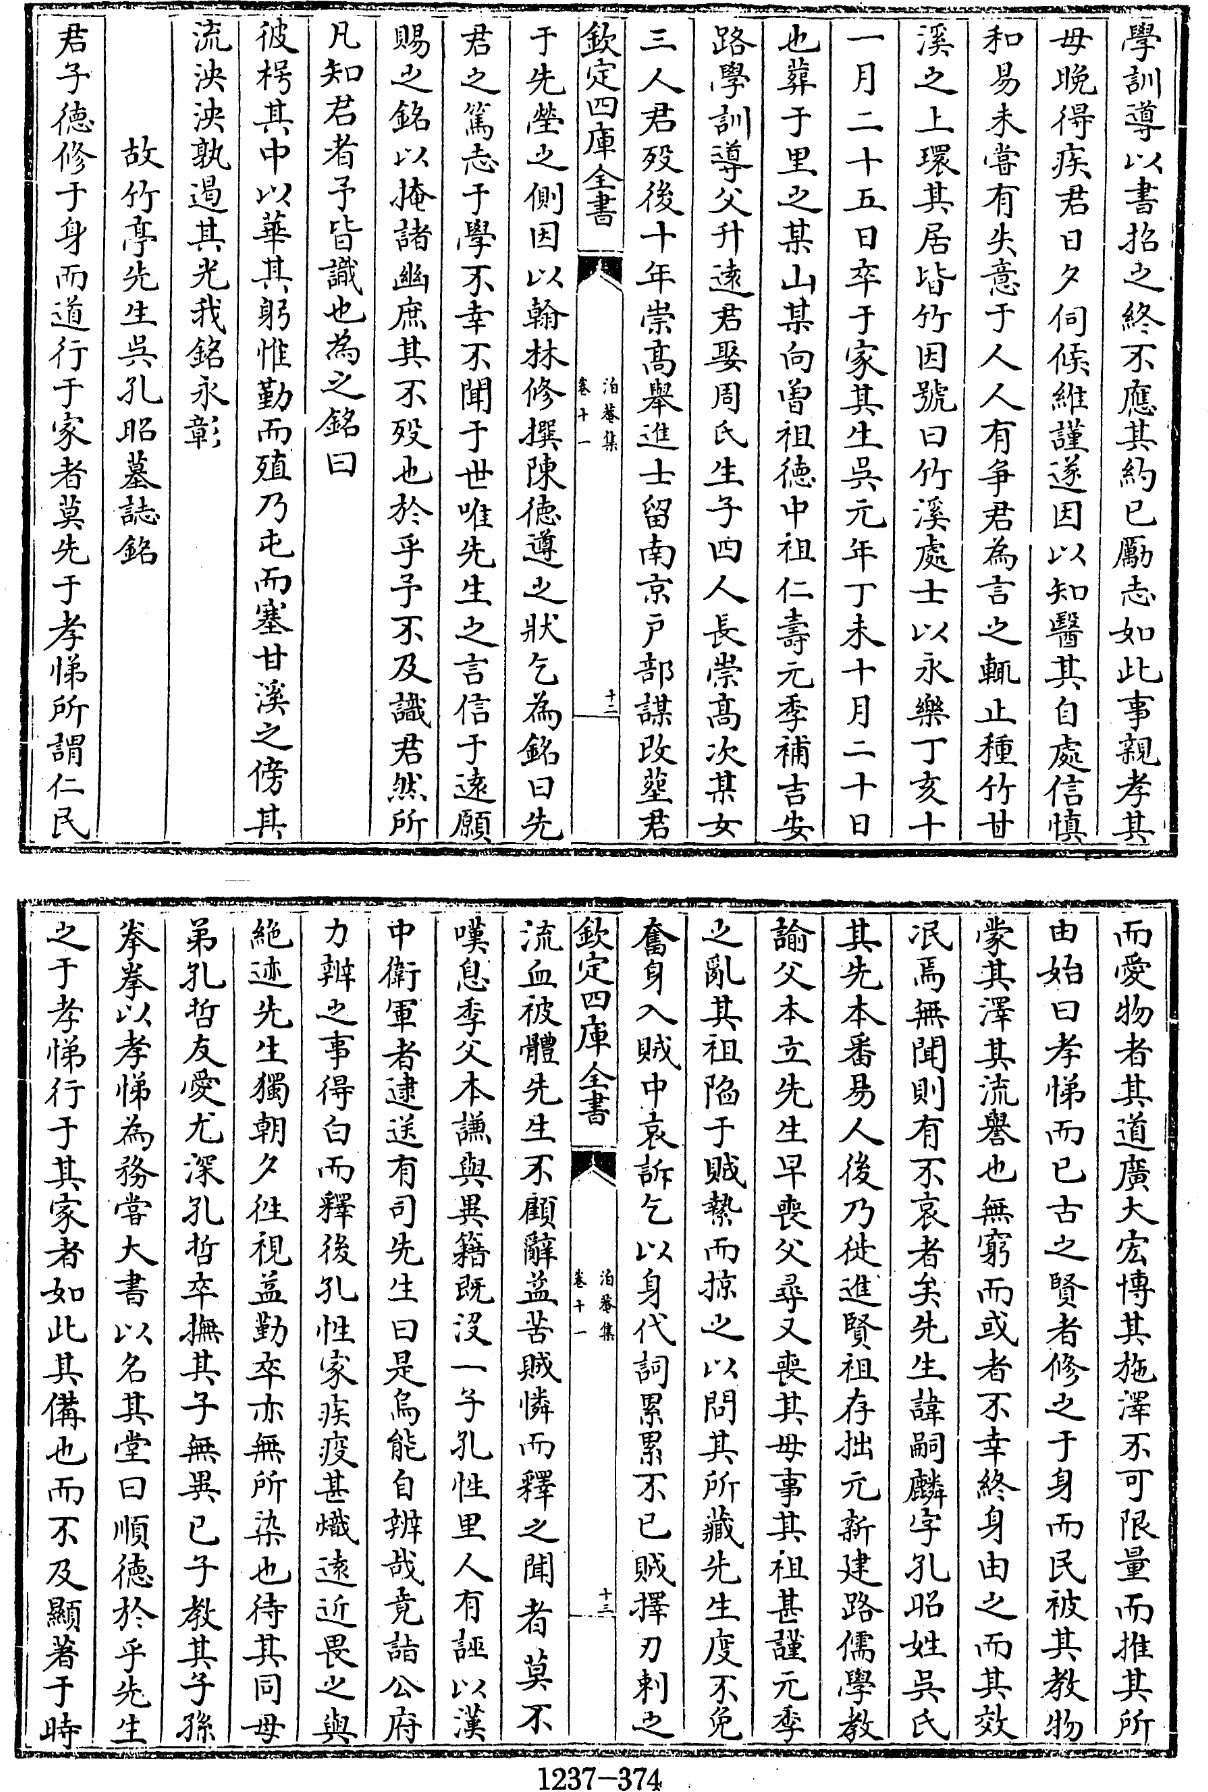 學訓導以書招之終不應其約已勵志如此事親孝其
母晚得疾君日夕伺候維謹遂因以知醫其自處信慎
和易未嘗有失意于人人有爭君為言之輒止種竹甘
溪之上環其居皆竹因號曰竹溪處士以永樂丁亥十
一月二十五日卒于家其生吳元年丁未十月二十日
也葬于里之某山某向曾祖德中祖仁壽元季補吉安
路學訓導父升遠君娶周氏生子四人長崇高次某女
三人君歿後十年崇高舉進士留南京戶部謀改葬君
欽定四庫全書
泊菴集
卷十一
十二
于先塋之側因以翰林修撰陳德遵之狀乞為銘曰先
君之篤志于學不幸不聞于世唯先生之言信于遠願
賜之銘以掩諸幽庶其不歿也於乎予不及識君然所
凡知君者予皆識也為之銘曰
彼枵其中以華其躬惟勤而殖乃屯而塞甘溪之傍其
流泱泱孰遏其光我銘永彰
故竹亭先生吳孔昭墓誌銘
君子德修于身而道行于家者莫先于孝悌所謂仁民
而愛物者其道廣大宏博其施澤不可限量而推其所
由始曰孝悌而已古之賢者修之于身而民被其教物
蒙其澤其流譽也無窮而或者不幸終身由之而其效
泯焉無聞則有不哀者矣先生諱嗣麟字孔昭姓吳氏
其先本番易人後乃徙進賢祖存拙元新建路儒學教
諭父本立先生早喪父尋又喪其母事其祖甚謹元季
之亂其祖陷于賊縶而掠之以問其所藏先生度不免
奮身入賊中哀訴乞以身代詞累累不已賊擇刃刺之
欽定四庫全書
泊菴集
卷十一
十三
流血被體先生不顧辭益苦賊憐而釋之聞者莫不
嘆息季父本謙與異籍既沒一子孔性里人有誣以漢
中衛軍者逮送有司先生曰是烏能自辨哉竟詣公府
力辨之事得白而釋後孔性家疾疫甚熾遠近畏之與
絕迹先生獨朝夕徃視益勤卒亦無所染也待其同母
弟孔哲友愛尤深孔哲卒撫其子無異已子教其子孫
拳拳以孝悌為務嘗大書以名其堂曰順德於乎先生
之于孝悌行于其家者如此其備也而不及顯著于時
1237-374